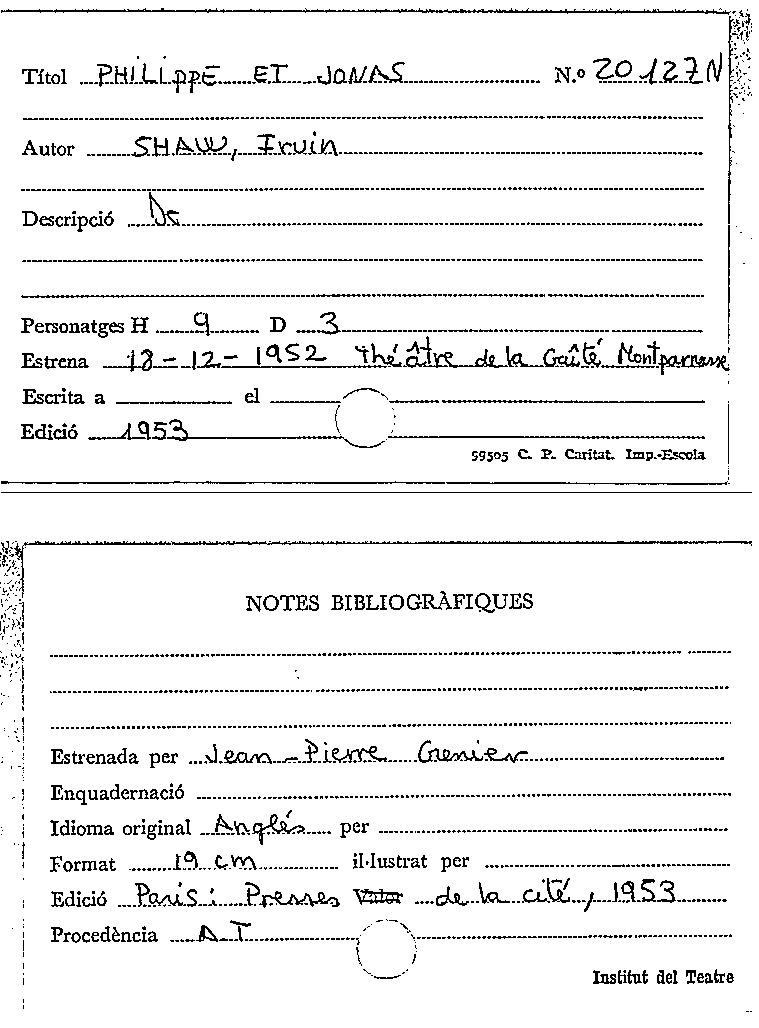 Títol PHILIPPE ET JONAS N.º 20.127N
Autor SHAW, Irwin
Descripció
Personatges H 9 D 3
Estrena 18-12-1952 Théâtre de la Gaîté Montparnasse
Escrita a el
Edició 1953
99505 C. P. Caritat. Imp.-Escola
NOTES BIBLIOGRÀFIQUES
Estrenada per Jean-Pierre Grenier
Enquadernació
Idioma original Anglés per
Format 19 cm il·lustrat per
Edició París: Presses de la cité, 1953
Procedència A.T
Institut del Teatre